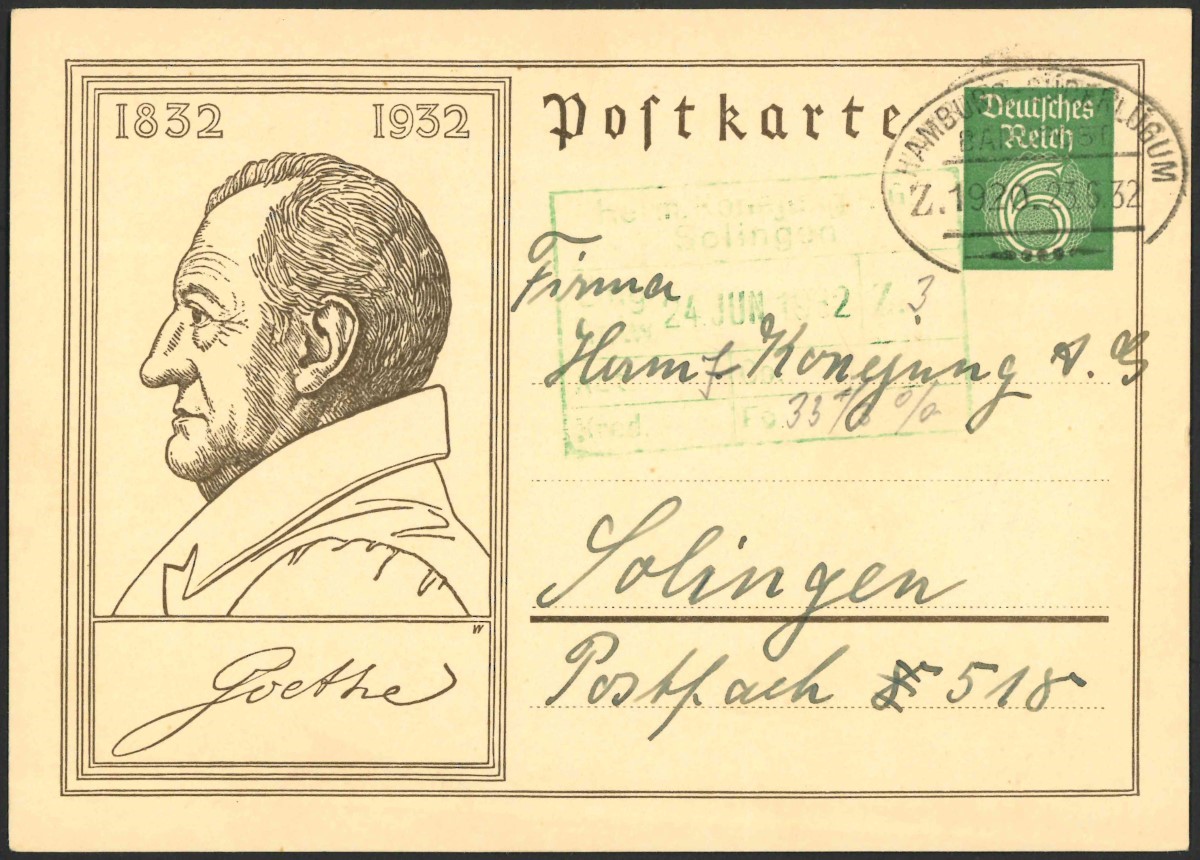 1832 1932
W
Goethe
Postkarte
Deutsches
Reich
6
HAMBURG-SÜDERLÜGUM
BAHNPOST
Z.1920 23 6 32
Solingen
24. JUN 1932 Z. 3
Kred. Fo. 33
Firma
Herm. Konejung A. G
Solingen
Postfach 518